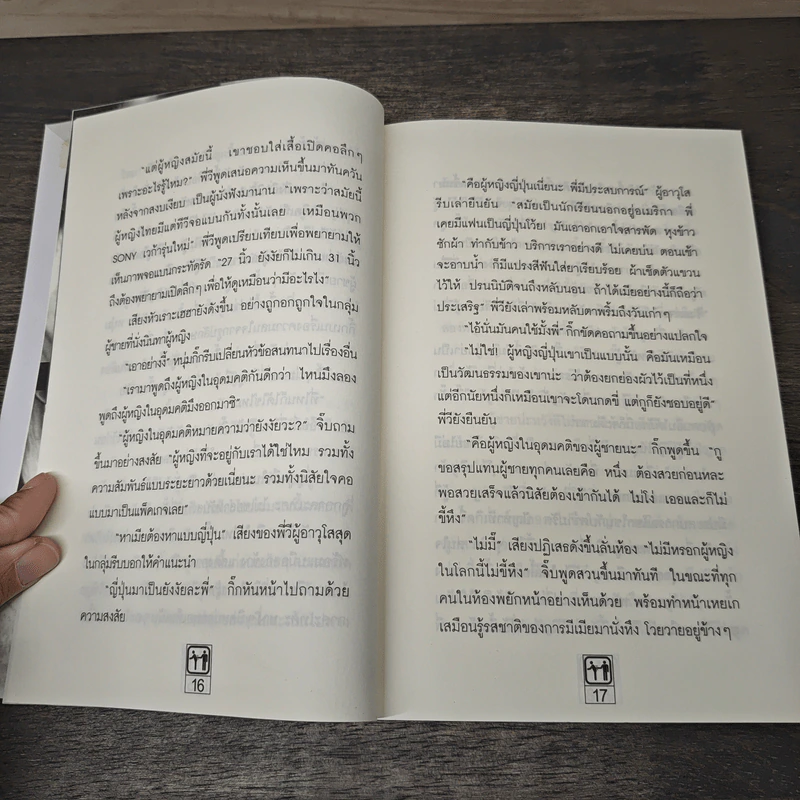 "แต่ผู้หญิงสมัยนี้ เขาชอบใส่เสื้อเปิดคอลึกๆ
เพราะอะไรรู้ไหม?" พี่วีพูดเสนอความเห็นขึ้นมาทันควัน
หลังจากสงบเงียบ เป็นผู้นั่งฟังมานาน "เพราะว่าสมัยนี้
ผู้หญิงไทยมีแต่ทีวีจอแบนกันทั้งนั้นเลย เหมือนพวก
SONY เวก้ารุ่นใหม่" พี่วีพูดเปรียบเทียบเพื่อพยายามให้
เห็นภาพจอแบนกระทัดรัด "27 นิ้ว ยังงัยก็ไม่เกิน 31 นิ้ว
ถึงต้องพยายามเปิดลึกๆ เพื่อให้ดูเหมือนว่ามีอะไรไง"
เสียงหัวเราะเฮฮายังดังขึ้น อย่างถูกอกถูกใจในกลุ่ม
ผู้ชายที่นั่งนินทาผู้หญิง
"เอาอย่างงี้" หนุ่มกิ๊กรีบเปลี่ยนหัวข้อสนทนาไปเรื่องอื่น
"เรามาพูดถึงผู้หญิงในอุดมคติกันดีกว่า ไหนมึงลอง
พูดถึงผู้หญิงในอุดมคติมึงออกมาซิ"
"ผู้หญิงในอุดมคติหมายความว่ายังงัยวะ?" จิ๊บถาม
ขึ้นมาอย่างสงสัย "ผู้หญิงที่จะอยู่กับเราได้ใช่ไหม รวมทั้ง
ความสัมพันธ์แบบระยะยาวด้วยเนี่ยนะ รวมทั้งนิสัยใจคอ
แบบมาเป็นแพ็คเกจเลย"
"หาเมียต้องหาแบบญี่ปุ่น" เสียงของพี่วีผู้อาวุโสสุด
ในกลุ่มรีบบอกให้คำแนะนำ
"ญี่ปุ่นมาเป็นยังงัยละพี่" กิ๊กหันหน้าไปถามด้วย
ความสงสัย
16
"คือผู้หญิงญี่ปุ่นเนี่ยนะ พี่มีประสบการณ์" ผู้อาวุโส
รีบเล่ายืนยัน "สมัยเป็นนักเรียนนอกอยู่อเมริกา พี่
เคยมีแฟนเป็นญี่ปุ่นโว้ย! มันเอาอกเอาใจสารพัด หุงข้าว
ซักผ้า ทำกับข้าว บริการเราอย่างดี ไม่เคยบ่น ตอนเช้า
จะอาบน้ำ ก็มีแปรงสีฟันใส่ยาเรียบร้อย ผ้าเช็ดตัวแขวน
ไว้ให้ ปรนนิบัติจนถึงหลับนอน ถ้าได้เมียอย่างนี้ก็ถือว่า
ประเสริฐ" พี่วียังเล่าพร้อมหลับตาพริ้มถึงวันเก่าๆ
"ไอ้นั่นมันคนใช้มั้งพี่" กิ๊กขัดคอถามขึ้นอย่างแปลกใจ
"ไม่ใช่! ผู้หญิงญี่ปุ่นเขาเป็นแบบนั้น คือมันเหมือน
เป็นวัฒนธรรมของเขาน่ะ ว่าต้องยกย่องผัวไว้เป็นที่หนึ่ง
แต่อีกนัยหนึ่งก็เหมือนเขาจะโดนกดขี่ แต่กูก็ยังชอบอยู่ดี"
พี่วียังยืนยัน
"คือผู้หญิงในอุดมคติของผู้ชายนะ" กิ๊กพูดขึ้น "กู
ขอสรุปแทนผู้ชายทุกคนเลยคือ หนึ่ง ต้องสวยก่อนหละ
พอสวยเสร็จแล้วนิสัยต้องเข้ากันได้ ไม่โง่ เออและก็ไม่
ขี้หึง"
"ไม่มี๊" เสียงปฏิเสธดังขึ้นลั่นห้อง "ไม่มีหรอกผู้หญิง
ในโลกนี้ไม่ขี้หึง" จิ๊บพูดสวนขึ้นมาทันที ในขณะที่ทุก
คนในห้องพยักหน้าอย่างเห็นด้วย พร้อมทำหน้าเหยเก
เสมือนรู้รสชาติของการมีเมียมานั่งหึง โวยวายอยู่ข้างๆ
17